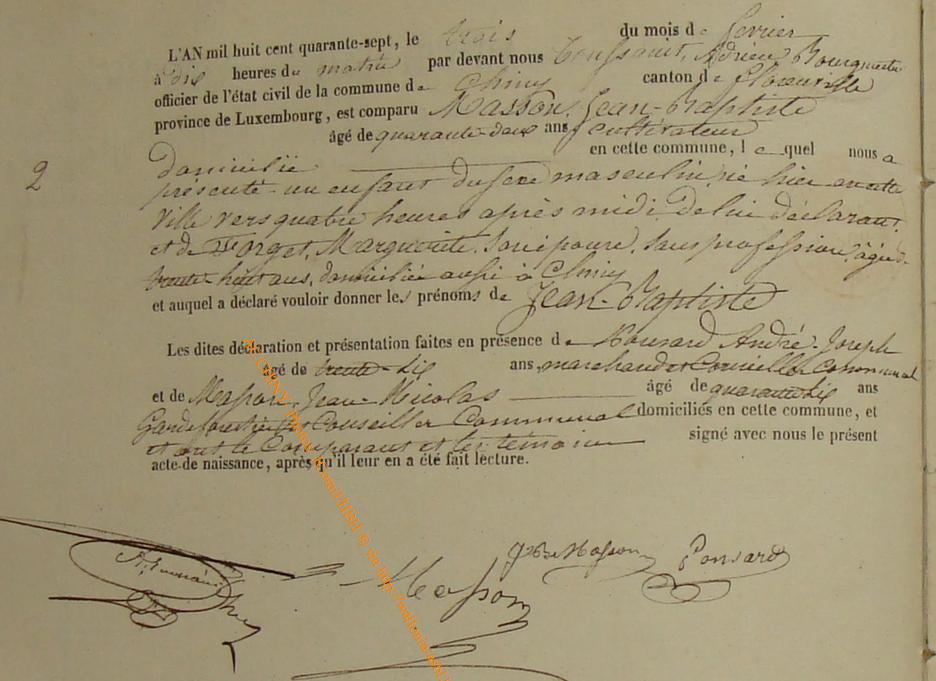 L'AN mil huit cent quarante-sept, le trois du mois de fevrier
à dix heures du matin par devant nous Toussaint, Adrien
officier de l'état civil de la commune de Chiny canton de Florenville
province de Luxembourg, est comparu Masson, Jean-Baptiste
âgé de quarante-deux ans, cultivateur
domicilié en cette commune, lequel nous a
2
présenté un enfant du sexe masculin, né hier en cette
ville vers quatre heures après midi, de lui déclarant,
et de Forget, Marguerite, son épouse, sans profession, âgée de
trente-huit ans, domiciliée aussi à Chiny
et auquel a déclaré vouloir donner les prénoms de Jean-Baptiste
Les dites déclaration et présentation faites en présence de Ponsard André-Joseph
âgé de trente-six ans, marchand et Conseiller Communal
et de Masson, Jean-Nicolas âgé de quarante-six ans
Garde forestier et Conseiller Communal domiciliés en cette commune, et
et ont le Comparant et les témoins signé avec nous le présent
acte de naissance, après qu'il leur en a été fait lecture.
Masson
Masson
Ponsard